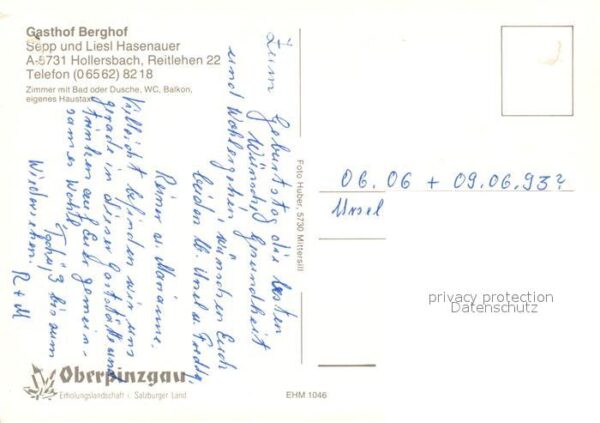 Gasthof Berghof
Sepp und Liesl Hasenauer
A-5731 Hollersbach, Reitlehen 22
Telefon (0 65 62) 82 18
Zimmer mit Bad oder Dusche, WC, Balkon,
eigenes Haustaxi
Zum Geburtstag die besten
Wünsche, Gesundheit
und Wohlergehen wünschen Euch
beiden lb. Ursel u. Freddy,
Reiner u. Marianne.
Vielleicht befinden wir uns
gerade in dieser Gaststätte und
trinken auf Euer gemein-
sames Wohl.
Tschüß bis zum
Wiedersehen.
R + M
Foto Huber, 5730 Mittersill
06.06 + 09.06.93?
Ursel
privacy protection
Datenschutz
Oberpinzgau
Erholungslandschaft i. Salzburger Land
EHM 1046